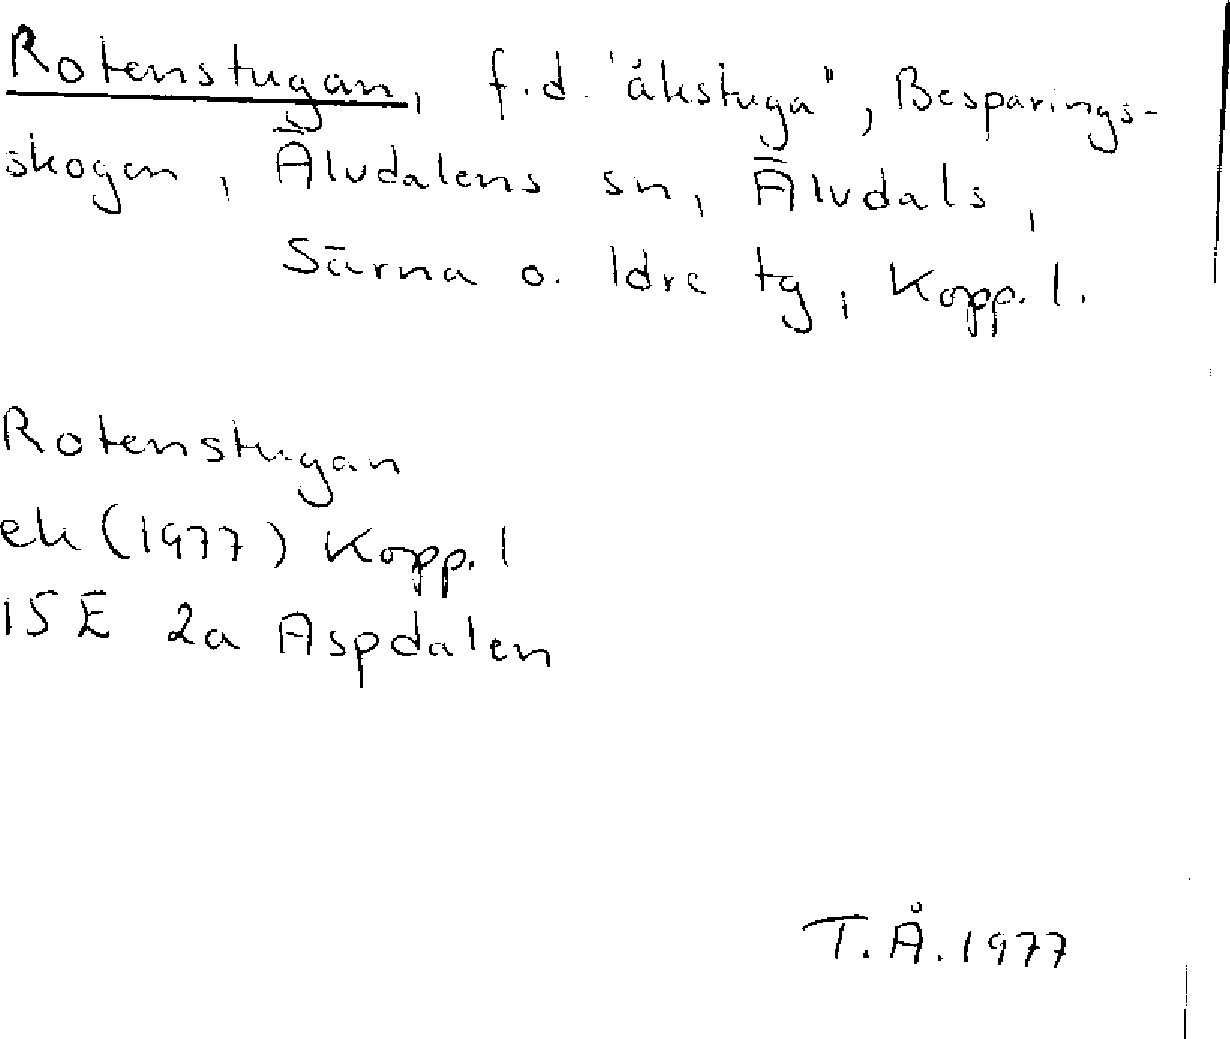 Rotenstugan, f.d. "åkstuga", Besparings-
skogen, Älvdalens sn, Älvdals,
Särna o. Idre tg, Kopp. l.
Rotenstugan
ek (1977) Kopp. l
15E 2a Aspdalen
T.Å. 1977